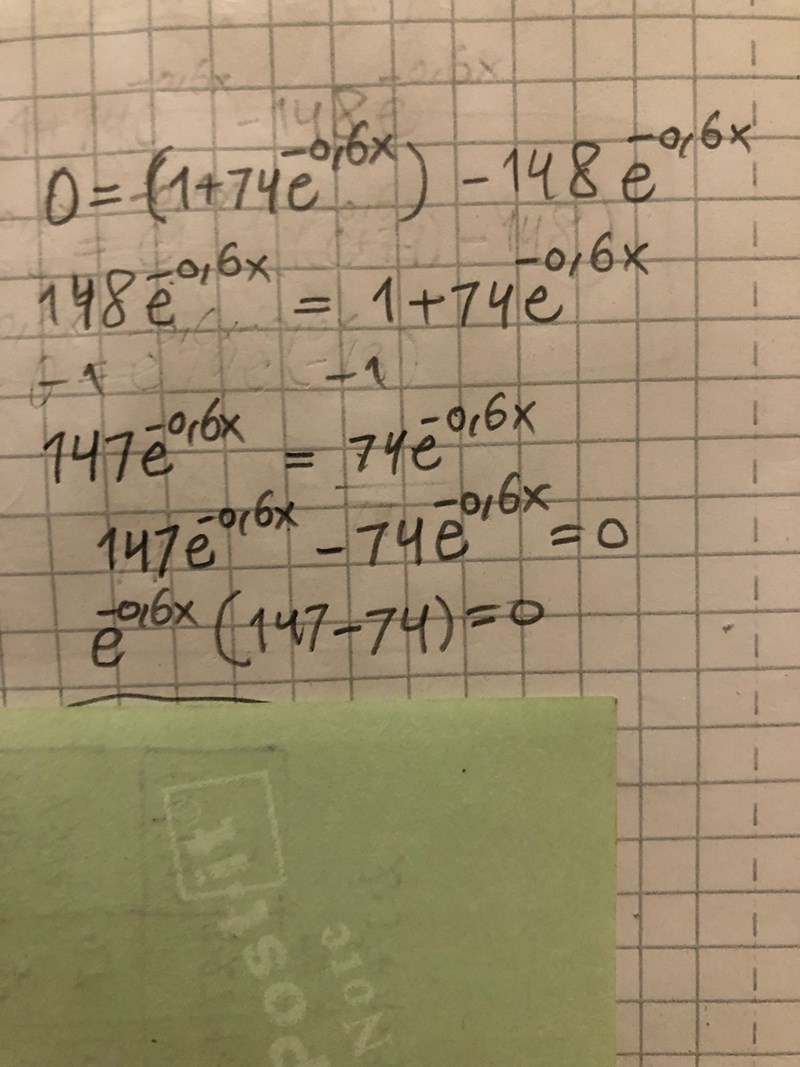 0 = (1+74e^{-0,6x}) - 148e^{-0,6x}
148e^{-0,6x} = 1+74e^{-0,6x}
-1 -1
147e^{-0,6x} = 74e^{-0,6x}
147e^{-0,6x} - 74e^{-0,6x} = 0
e^{-0,6x} (147-74) = 0
Post-it
NOTE